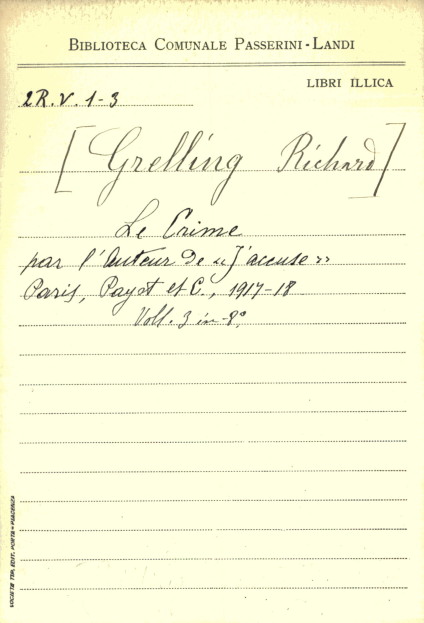 BIBLIOTECA COMUNALE PASSERINI-LANDI
LIBRI ILLICA
2R.V. 1-3
[Grelling Richard]
Le Crime
par l'Auteur de «J'accuse»
Paris, Payot et C., 1917-18
Voll. 3 in-8°.
SOCIETÀ TIP. EDIT. PORTA - PIACENZA